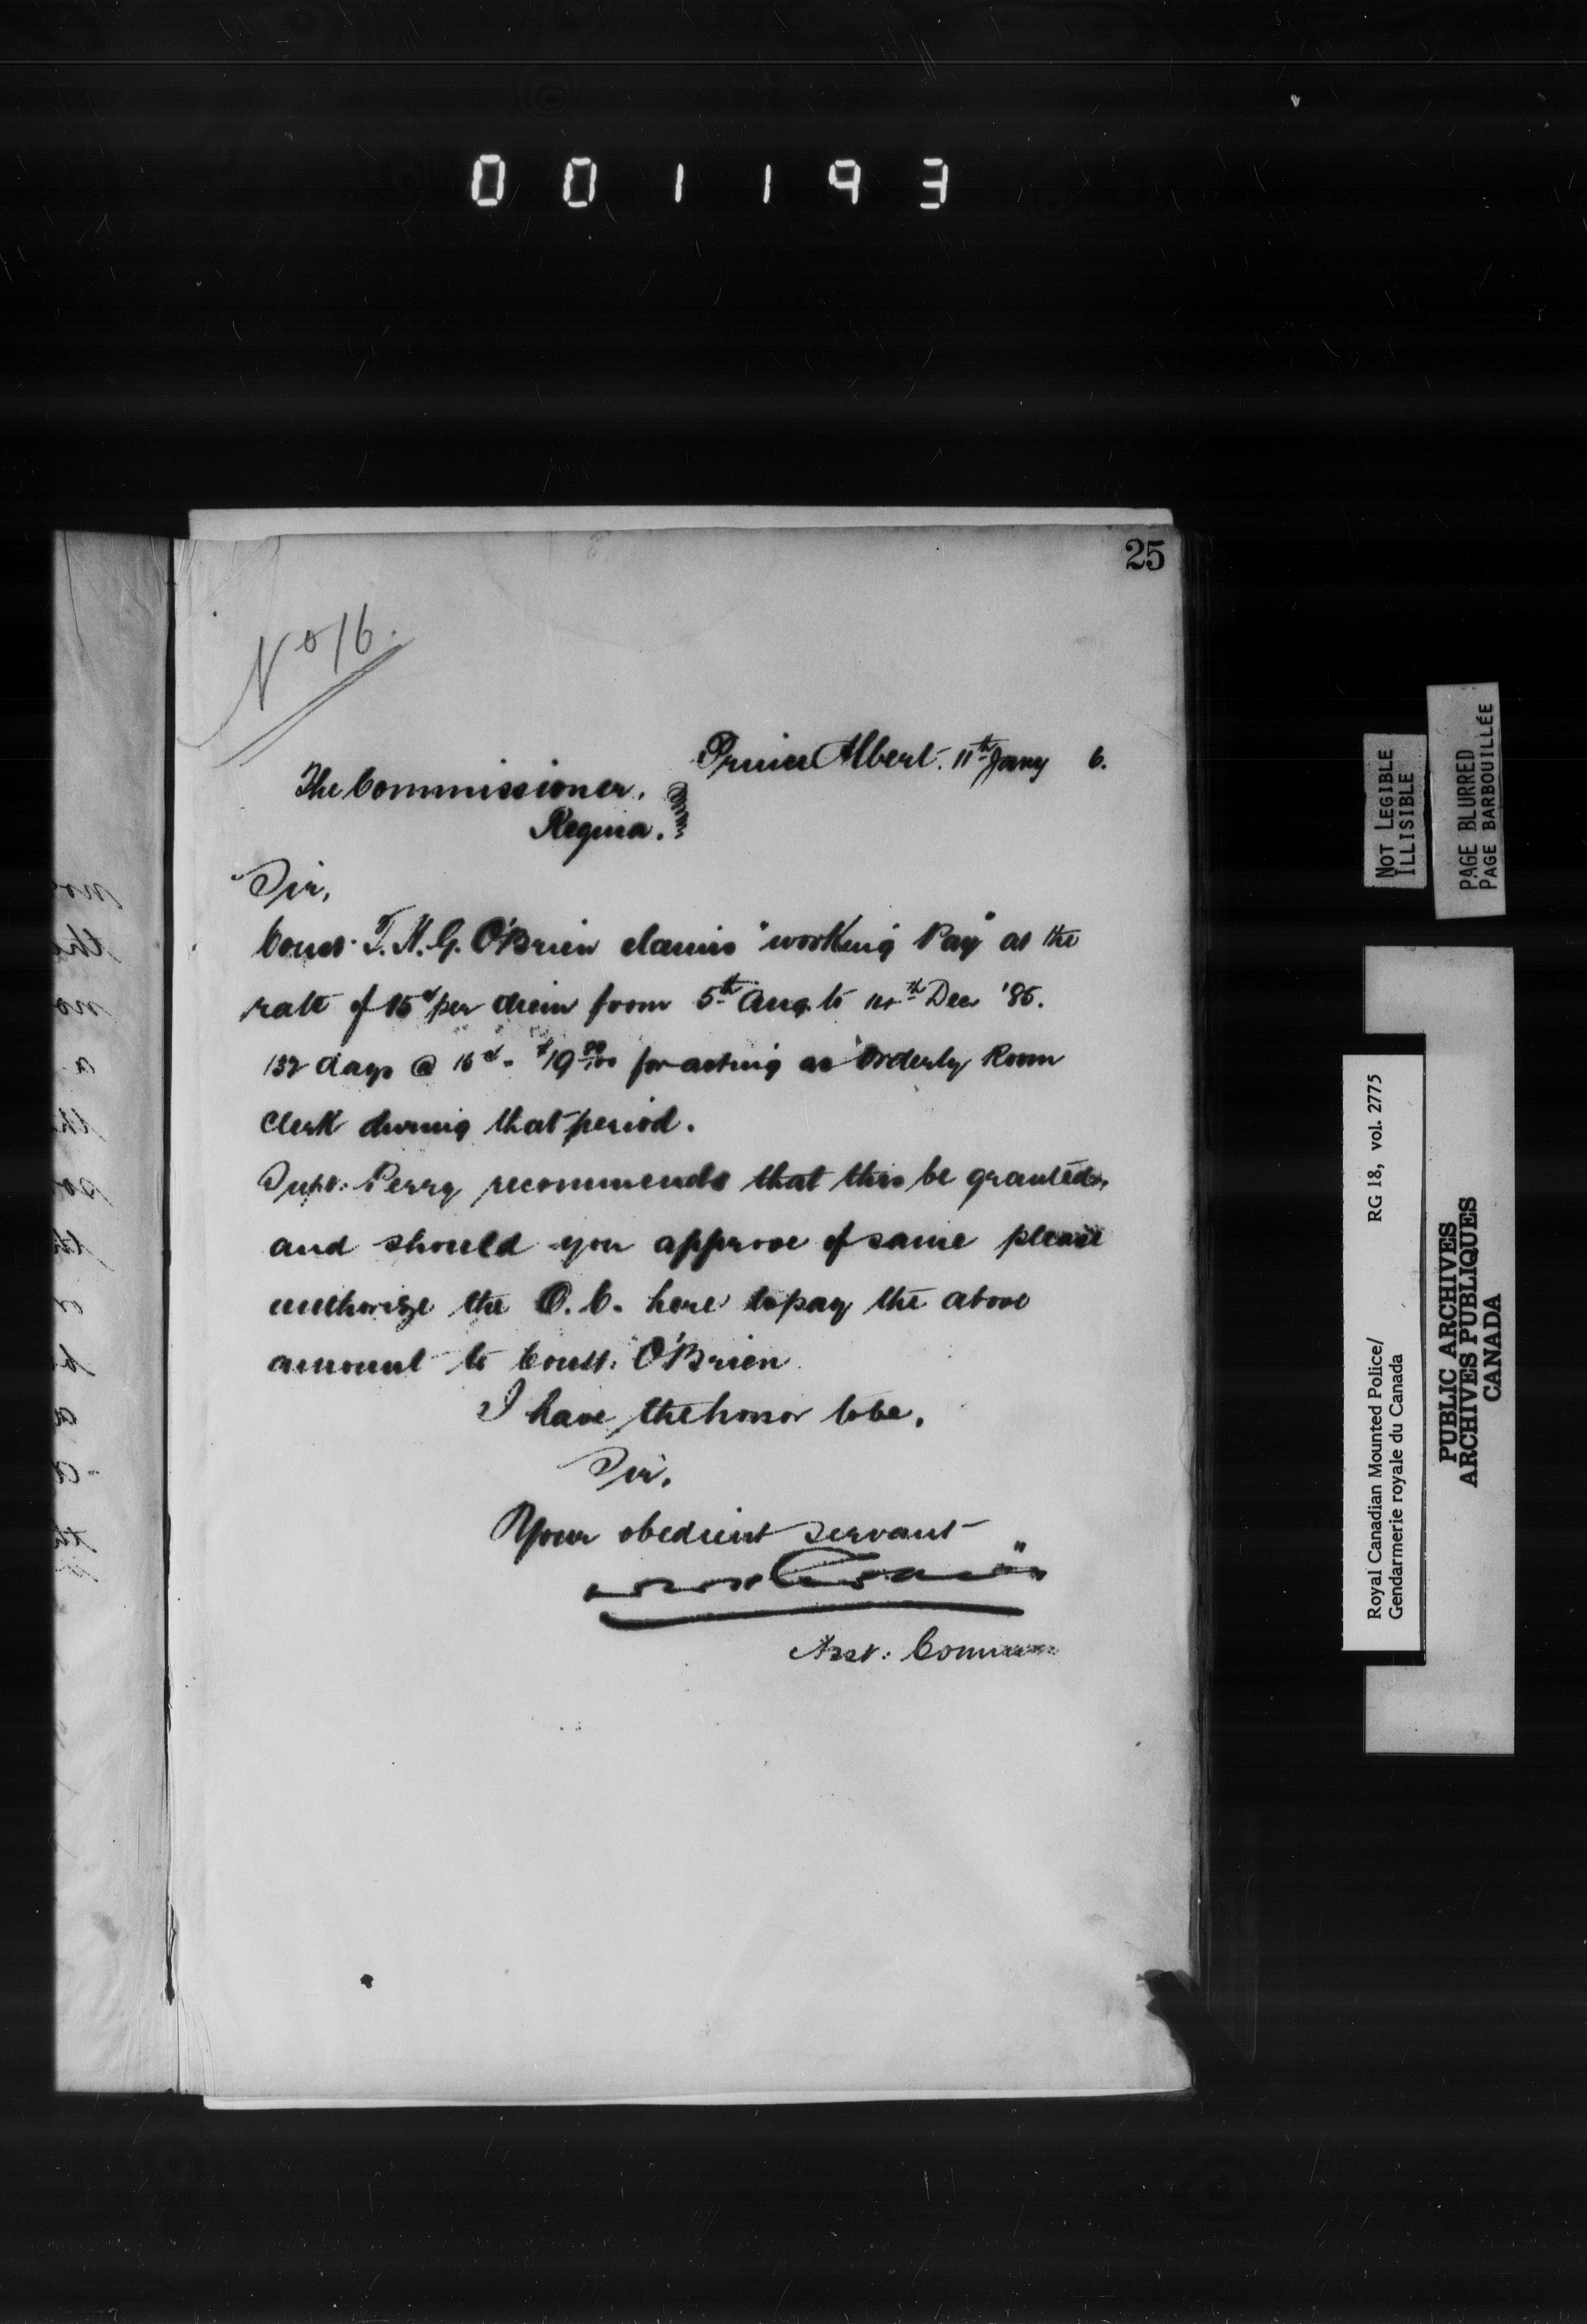 001193
25
No 16.
Prince Albert. 11th Jany 6.
The Commissioner,
Regina.
Sir,
Const. T. H. G. O'Brien claims "working Pay" at the
rate of 15 per diem from 5th Aug. to 14th Dec '85.
132 days @ 15 $19 80/100 for acting as Orderly Room
Clerk during that period.
Supt. Perry recommends that this be granted,
and should you approve of same please
authorize the O.C. here to pay the above
amount to Const. O'Brien
I have the honor to be,
Sir,
Your obedient Servant
Asst. Commissioner
NOT LEGIBLE
ILLISIBLE
PAGE BLURRED
PAGE BARBOUILLÉE
Royal Canadian Mounted Police/ RG 18, vol. 2775
Gendarmerie royale du Canada
PUBLIC ARCHIVES
ARCHIVES PUBLIQUES
CANADA